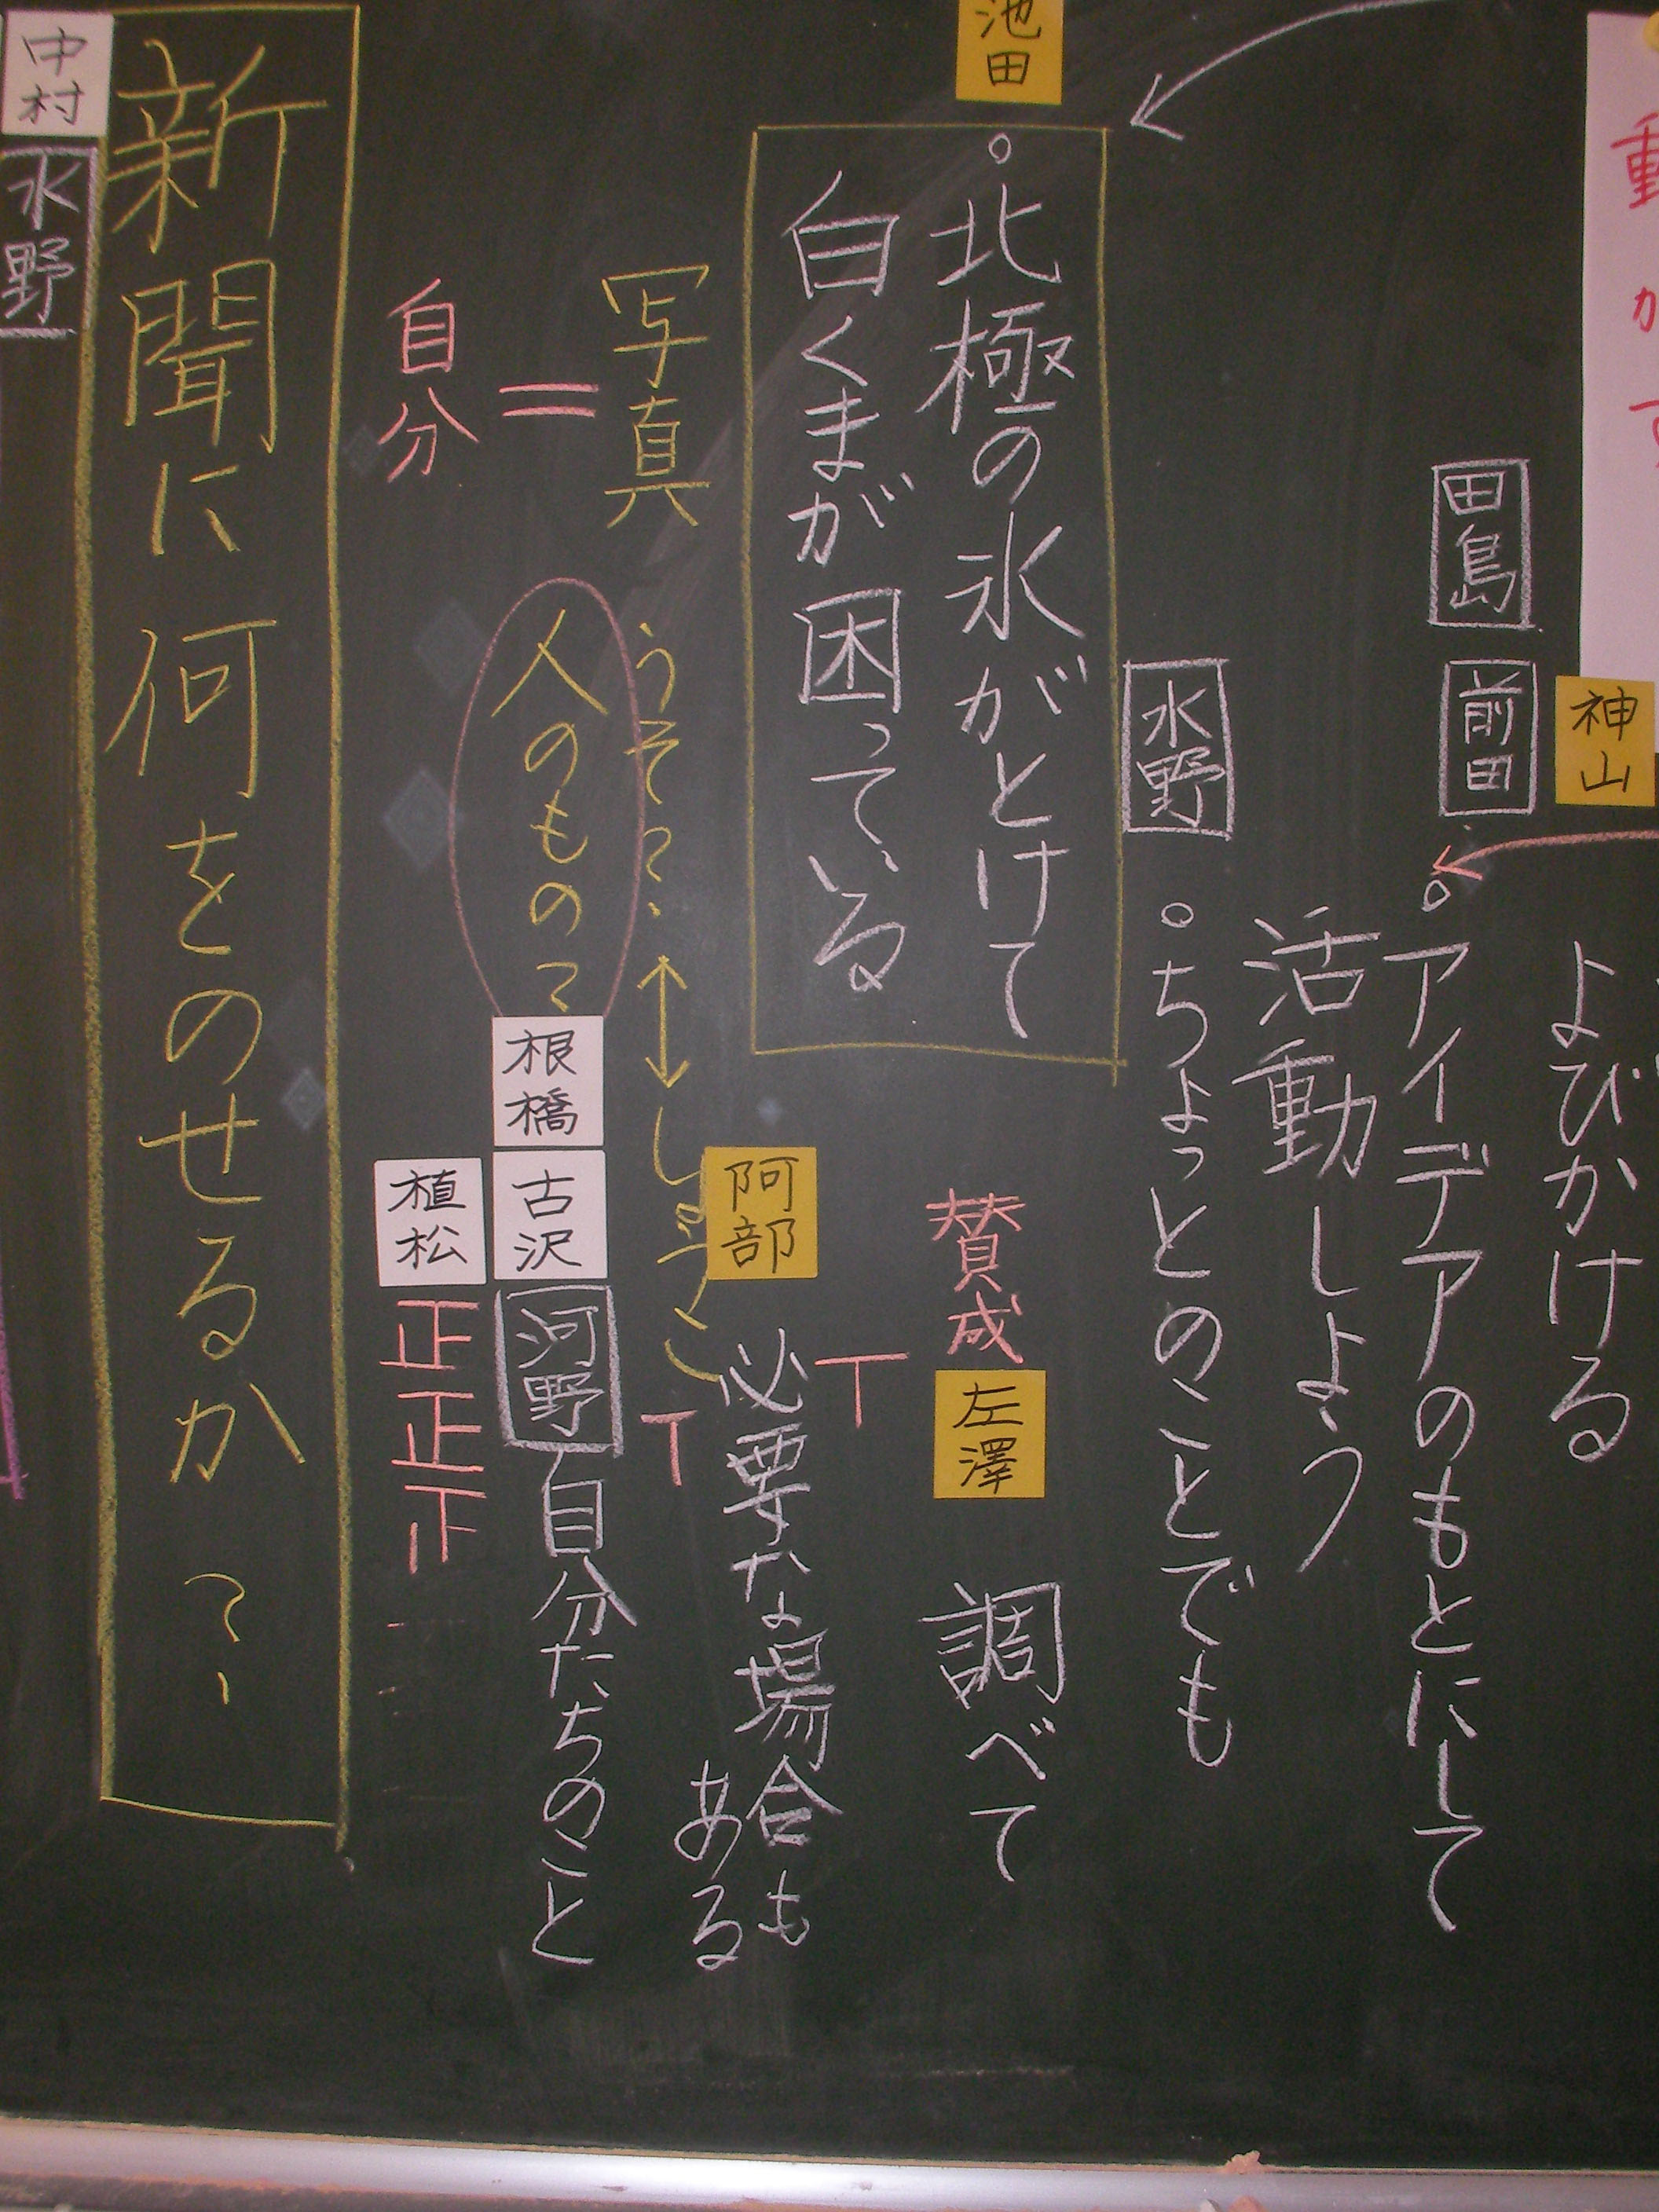 動
が
す
神山
よびかける
田島
前田
。アイデアのもとにして
活動しよう
水野
。ちょっとのことでも
池田
。北極の氷がとけて
白くまが困っている
賛成
左澤
調べて
阿部
必要な場合も
ある
写真
うそ？↔しょうこ
＝
自分
人のもの？
根橋
古沢
河野
自分たちのこと
植松
正正正
新聞に何をのせるか？
中村
水野